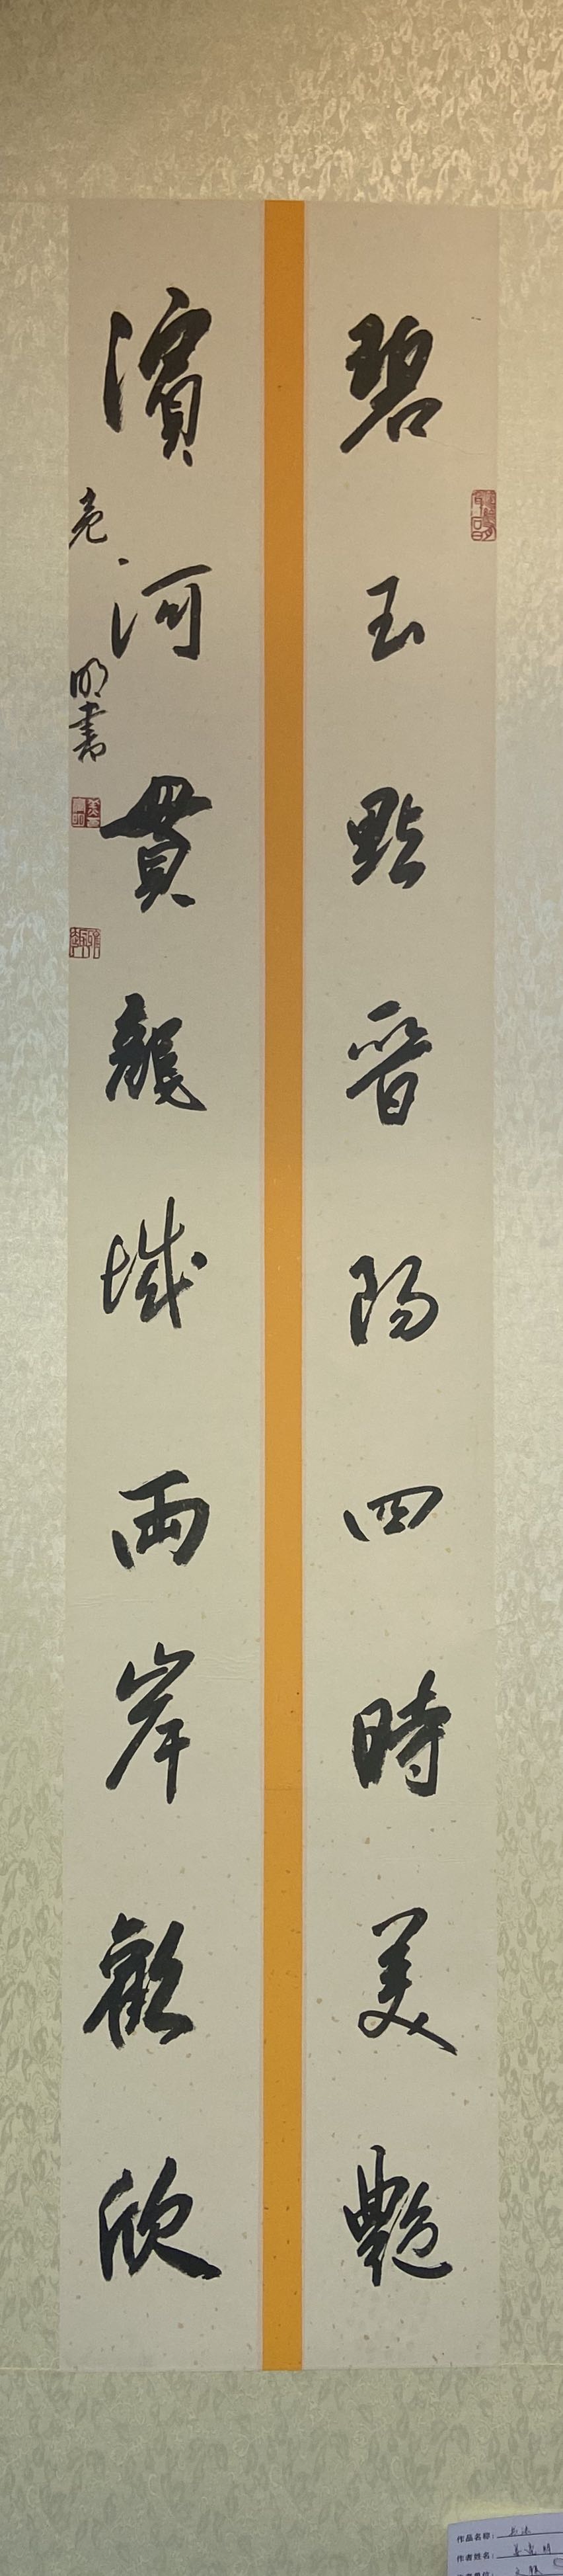 碧玉點晉陽四時美艷
濱河貫龍城兩岸歡欣
亮明書
作品名称：书法
作者姓名：